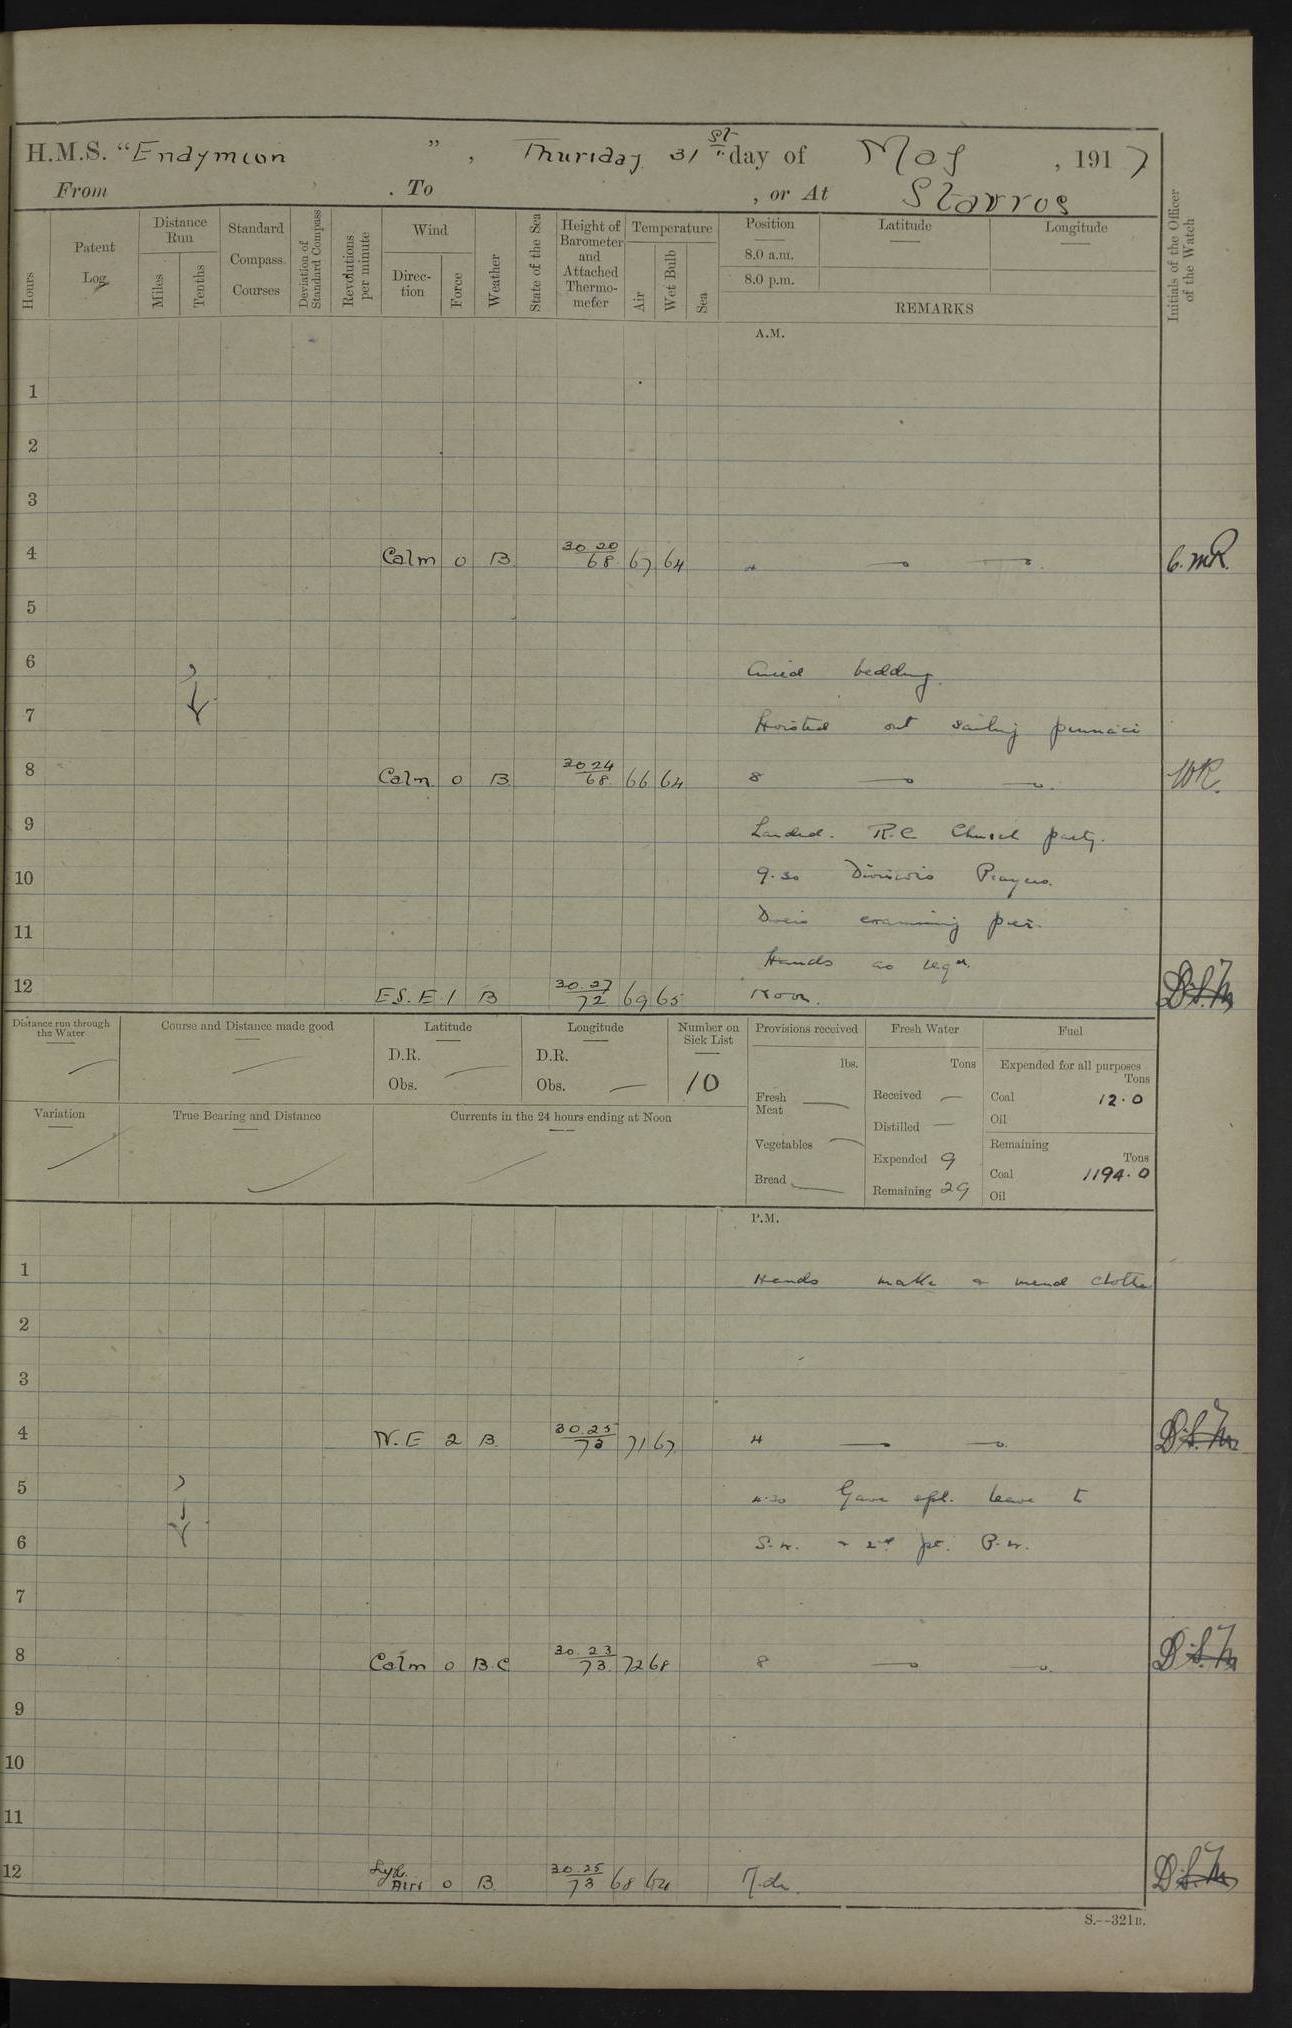 H.M.S. "Endymion ", Thursday 31st day of May, 1917
From . To , or At Stavros
Hours
Patent Log
Distance Run
Miles
Tenths
Standard Compass Courses
Deviation of Standard Compass
Revolutions per minute
Wind
Direction
Force
Weather
State of the Sea
Height of Barometer and Attached Thermometer
Temperature
Air
Wet Bulb
Sea
Position
8.0 a.m.
8.0 p.m.
Latitude
Longitude
REMARKS
Initials of the Officer of the Watch
A.M.
1
2
3
4 Calm 0 B 30 20/68 67 64 4
5
6 Aired bedding.
7 Hoisted out sailing pinnace
8 Calm 0 B 30 24/68 66 64 8 WR.
9 Landed. R.C Church party.
10 9.30 Divisions Prayers.
11 Divers examining pier.
Hands as reqd.
12 E S.E 1 B 30.27/72 69 65 Noon.
Distance run through the Water
Course and Distance made good
Latitude
D.R.
Obs.
Longitude
D.R.
Obs.
Number on Sick List
10
Variation
True Bearing and Distance
Currents in the 24 hours ending at Noon
Provisions received
lbs.
Fresh Meat
Vegetables
Bread
Fresh Water
Tons
Received
Distilled
Expended 9
Remaining 29
Fuel
Expended for all purposes
Tons
Coal 12.0
Oil
Remaining
Tons
Coal 1194.0
Oil
P.M.
1 Hands make & mend clothes
2
3
4 N.E 2 B. 30.25/73 71 67 4
5 4.30 Gave spl. leave to
6 S.W. & 2nd pt. P.W.
7
8 Calm 0 B.C 30.23/73 72 68 8
9
10
11
12 Airs 0 B 30.25/73 68 64
S.--321B.